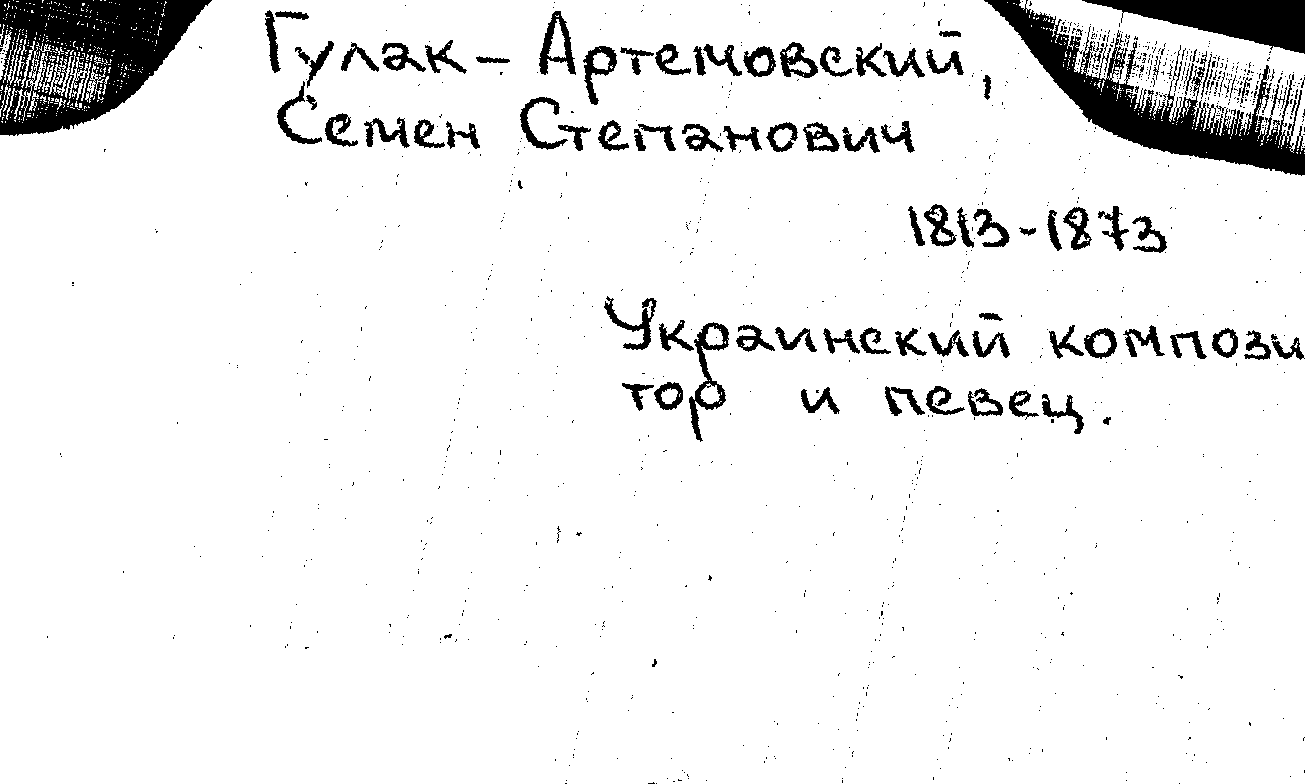 Гулак-Артемовский,
Семен Степанович
1813-1873
Украинский компози
тор и певец.